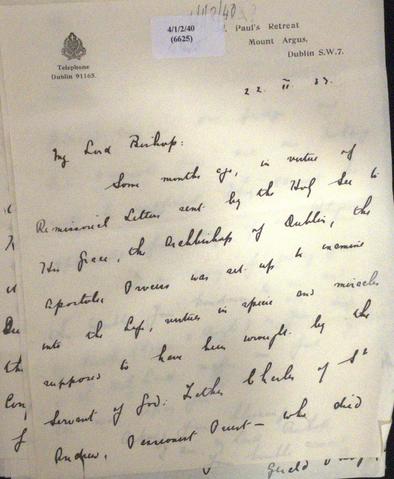 4/1/2/40
4/1/2/40
(6625)
Paul's Retreat
Mount Argus,
Dublin S.W.7.
Telephone
Dublin 91165.
My Lord Bishop:
Some months ago, in virtue of
Remissorial Letters sent by the Holy See to
His Grace, the Archbishop of Dublin, the
Apostolic Process was set up to examine
into the life, virtues in specie and miracles
supposed to have been wrought by the
Servant of God: Father Charles of St
Andrew, Passionist Priest – who died